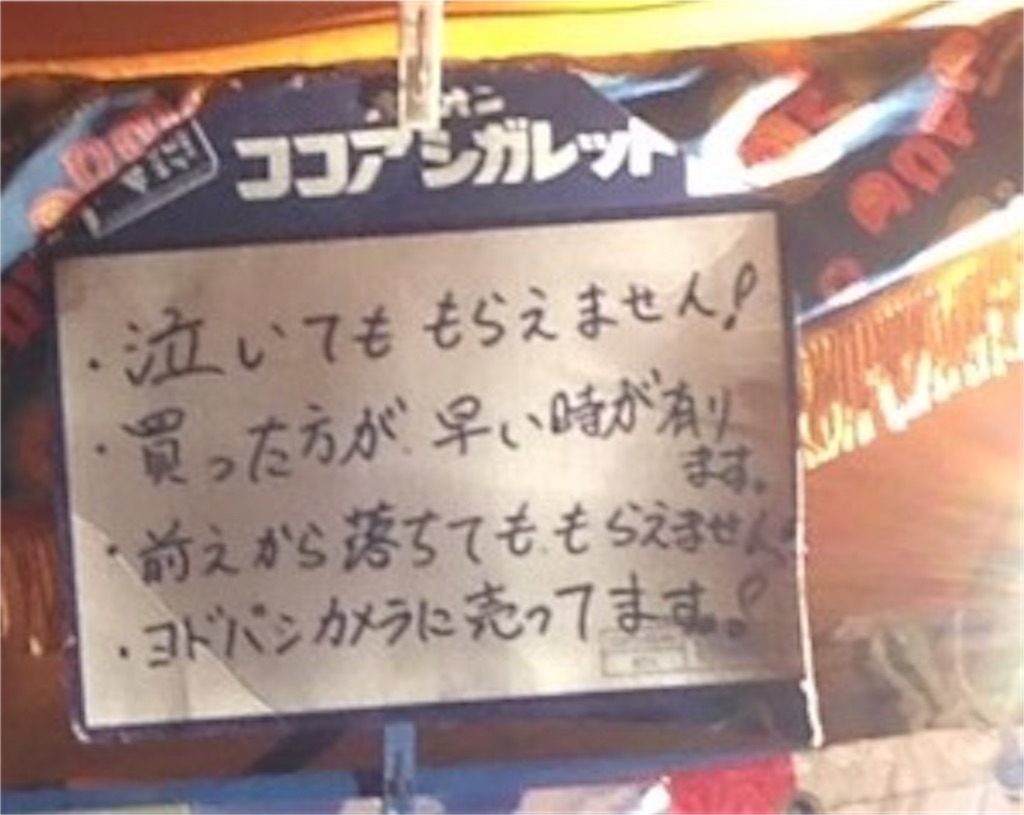 オリオン
ココアシガレット
・泣いてももらえません!
・買った方が、早い時が有り
ます。
・前えから落ちても、もらえません。
・ヨドバシカメラに売ってます。!